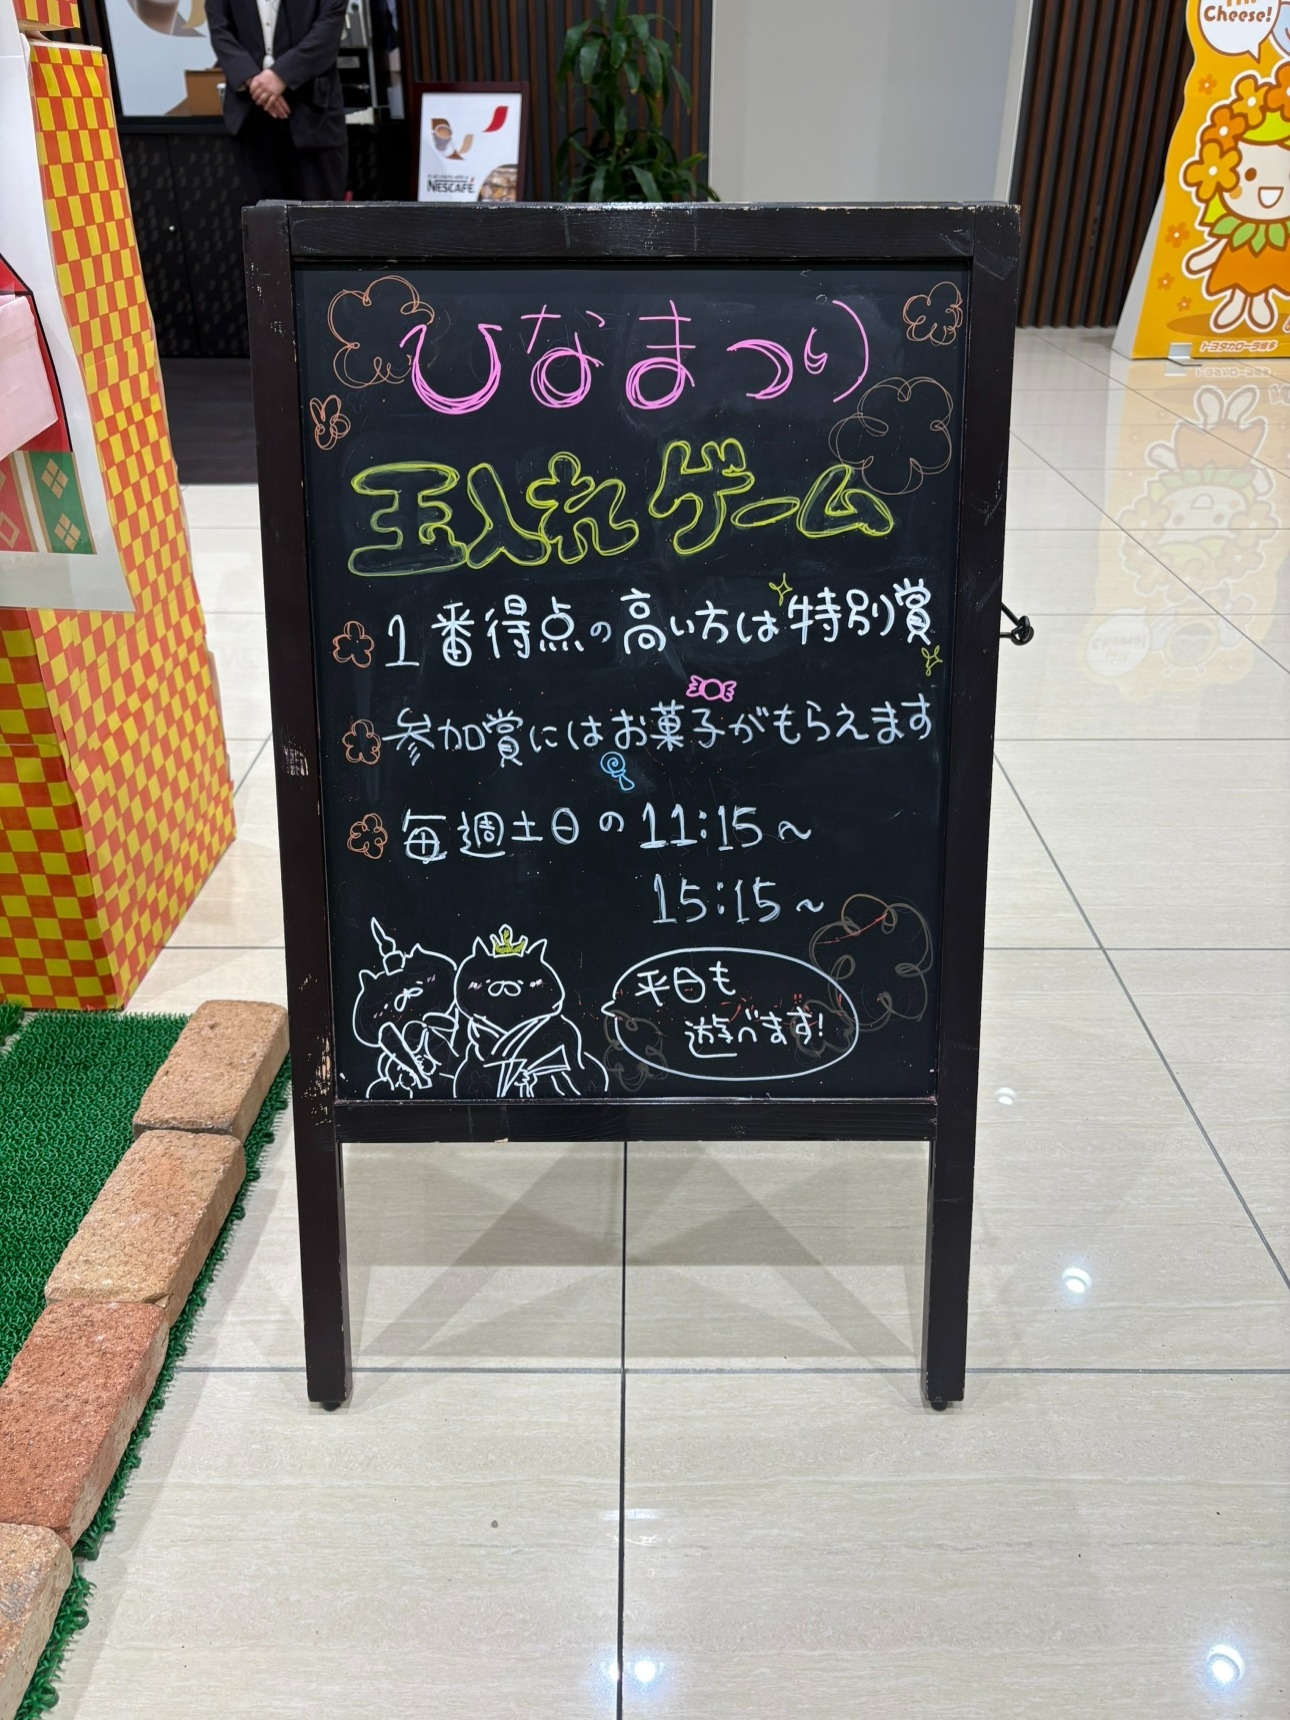 Cheese!
NESCAFÉ
トヨタカローラ博多
ひなまつり
玉入れゲーム
1番得点の高い方は特別賞
参加賞にはお菓子がもらえます
毎週土日の11:15~
15:15~
平日も
遊べます!